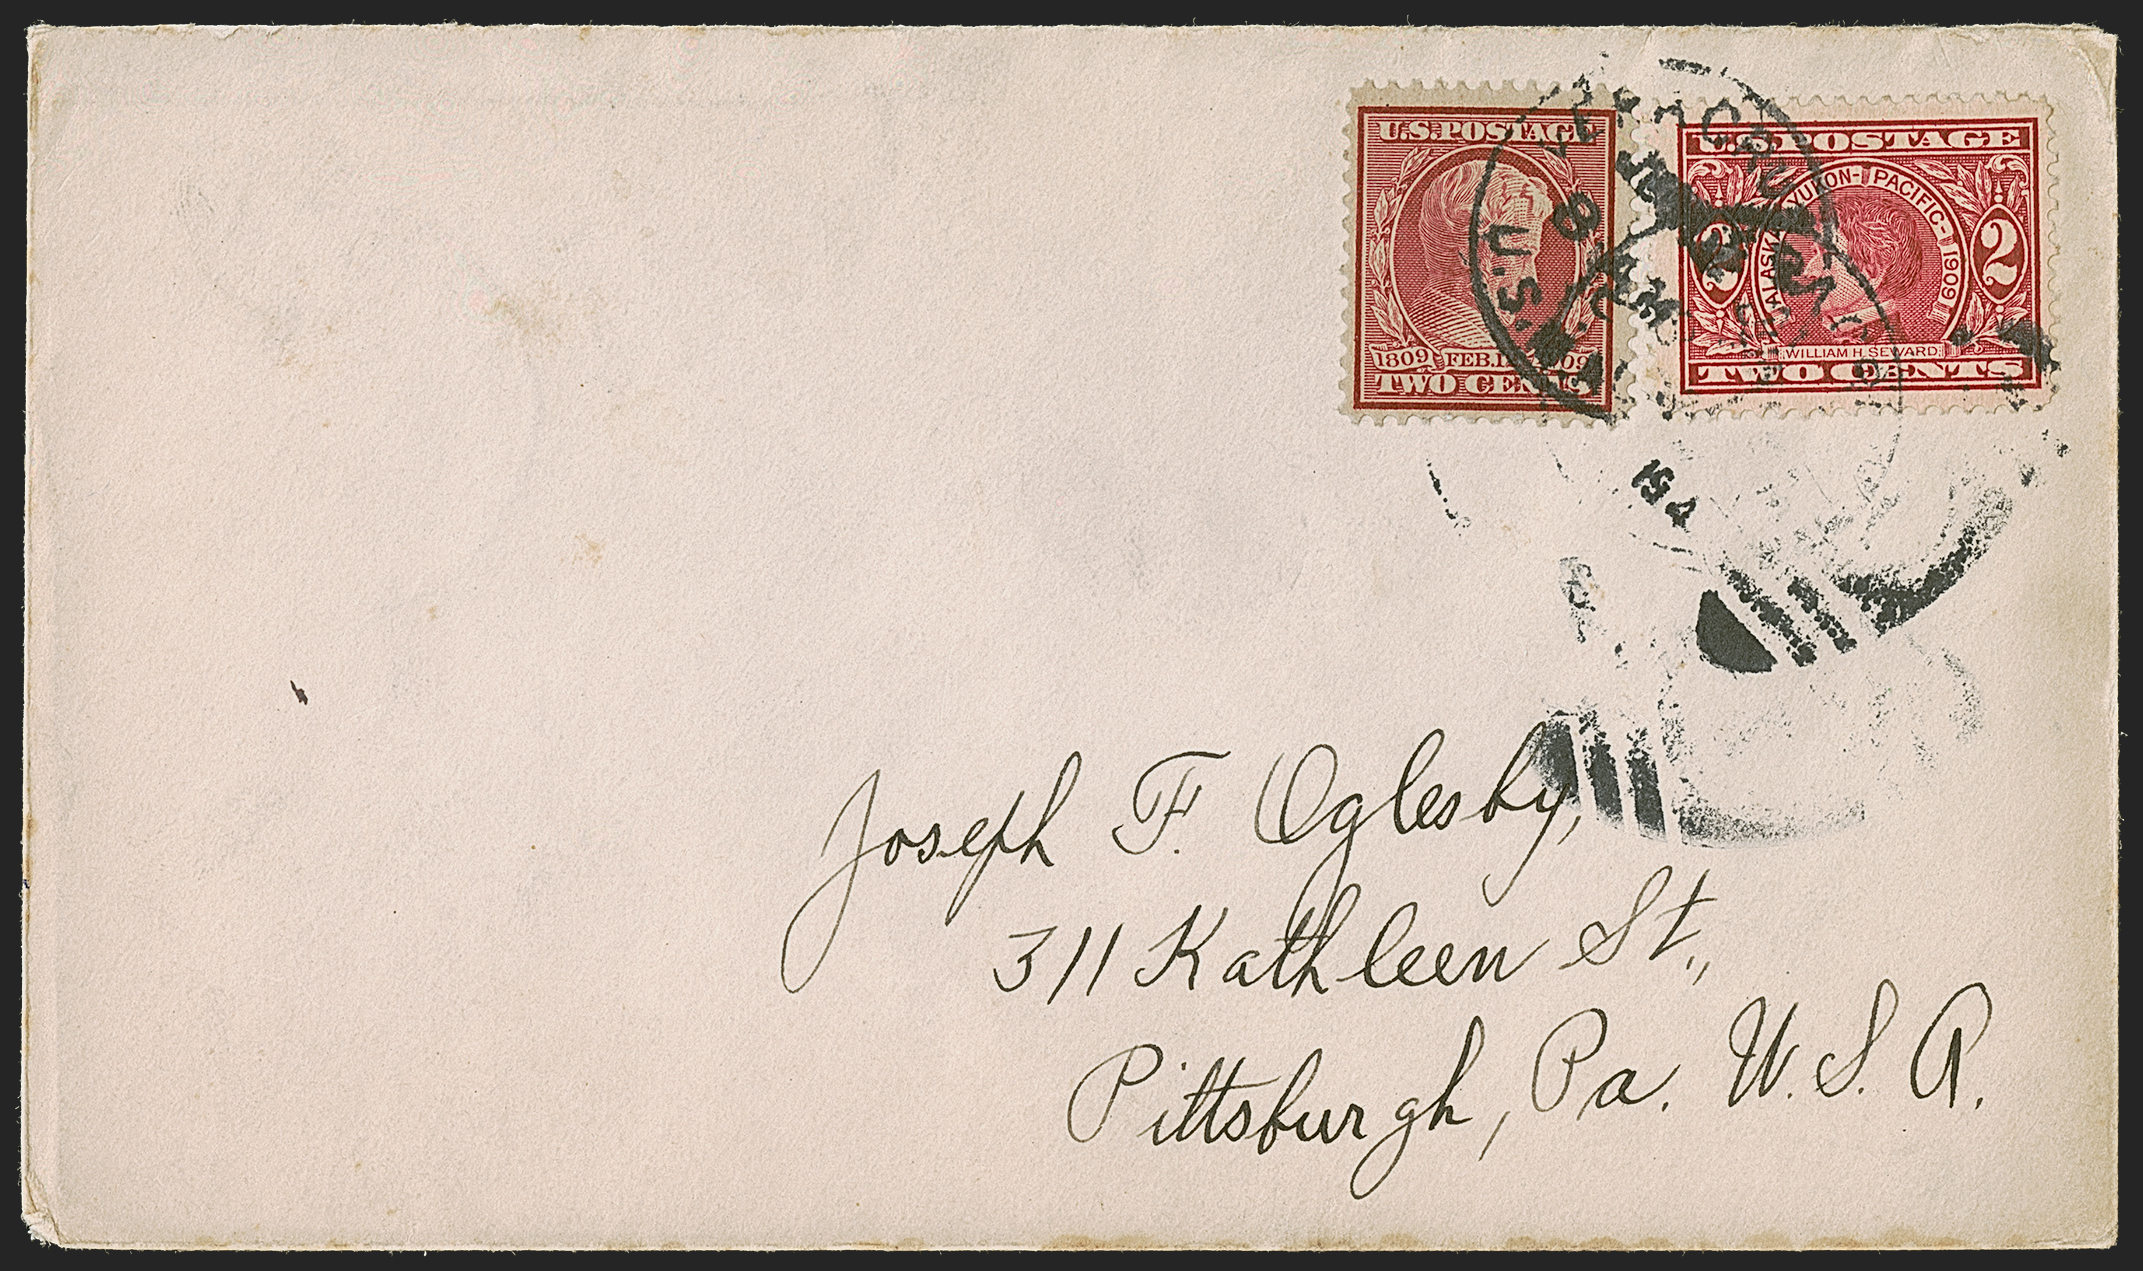 U.S. POSTAGE
1809 FEB. 1909
TWO CENTS
U.S. POSTAGE
ALASKA YUKON-PACIFIC-1909
2 2
WILLIAM H. SEWARD
TWO CENTS
U.S.
Joseph F. Oglesby,
311 Kathleen St.,
Pittsburgh, Pa. U.S.A.